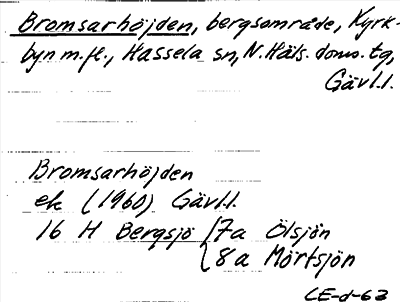 Bromsarhöjden, bergsområde, Kyrk-
byn m.fl., Hassela sn, N. Häls. doms. tg,
Gävl.l.
Bromsarhöjden
ek (1960) Gävl.l.
16 H Bergsjö { 7a Ölsjön
8a Mörtsjön
CE-d-63